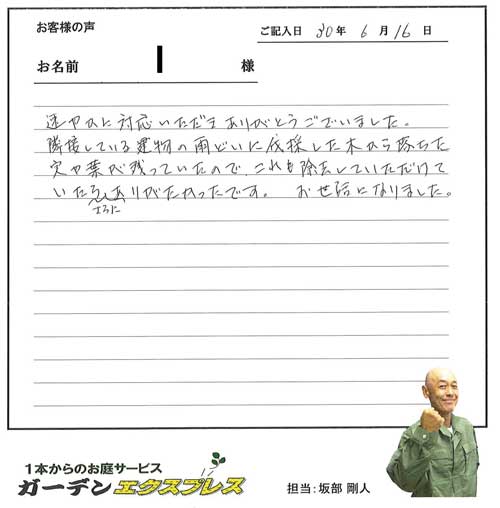 お客様の声
ご記入日 30年 6月16日
お名前 様
速やかに対応いただきありがとうございました。
隣接している建物の雨どいに伐採した木から落ちた
実や葉が残っていたので、これも除去していただけて
いたらさらにありがたかったです。 お世話になりました。
1本からのお庭サービス
ガーデンエクスプレス
担当:坂部 剛人